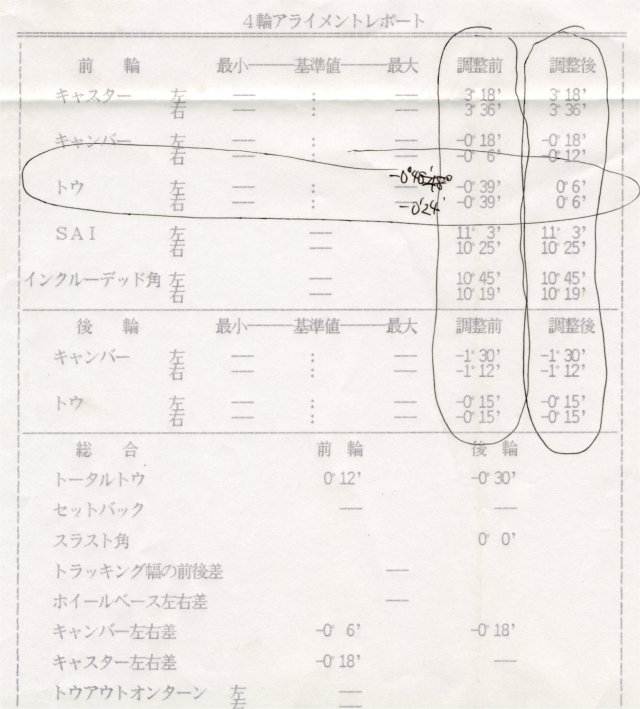 4輪アライメントレポート
前 輪 最小───基準値───最大 調整前 調整後
キャスター 左 ─── : ─── 3°18' 3°18'
右 ─── : ─── 3°36' 3°36'
キャンバー 左 ─── : ─── -0°18' -0°18'
右 ─── : ─── -0°6' -0°12'
トウ 左 ─── : ─── -0°39' 0°6'
右 ─── : ─── -0°24' -0°39' 0°6'
SAI 左 ─── 11°3' 11°3'
右 ─── 10°25' 10°25'
インクルーデッド角 左 ─── 10°45' 10°45'
右 ─── 10°19' 10°19'
後 輪 最小───基準値───最大 調整前 調整後
キャンバー 左 ─── : ─── -1°30' -1°30'
右 ─── : ─── -1°12' -1°12'
トウ 左 ─── : ─── -0°15' -0°15'
右 ─── : ─── -0°15' -0°15'
総 合 前 輪 後 輪
トータルトウ 0°12' -0°30'
セットバック ─── ───
スラスト角 0°0'
トラッキング幅の前後差 ───
ホイールベース左右差 ───
キャンバー左右差 -0°6' -0°18'
キャスター左右差 -0°18' ───
トウアウトオンターン 左 ───
右 ───